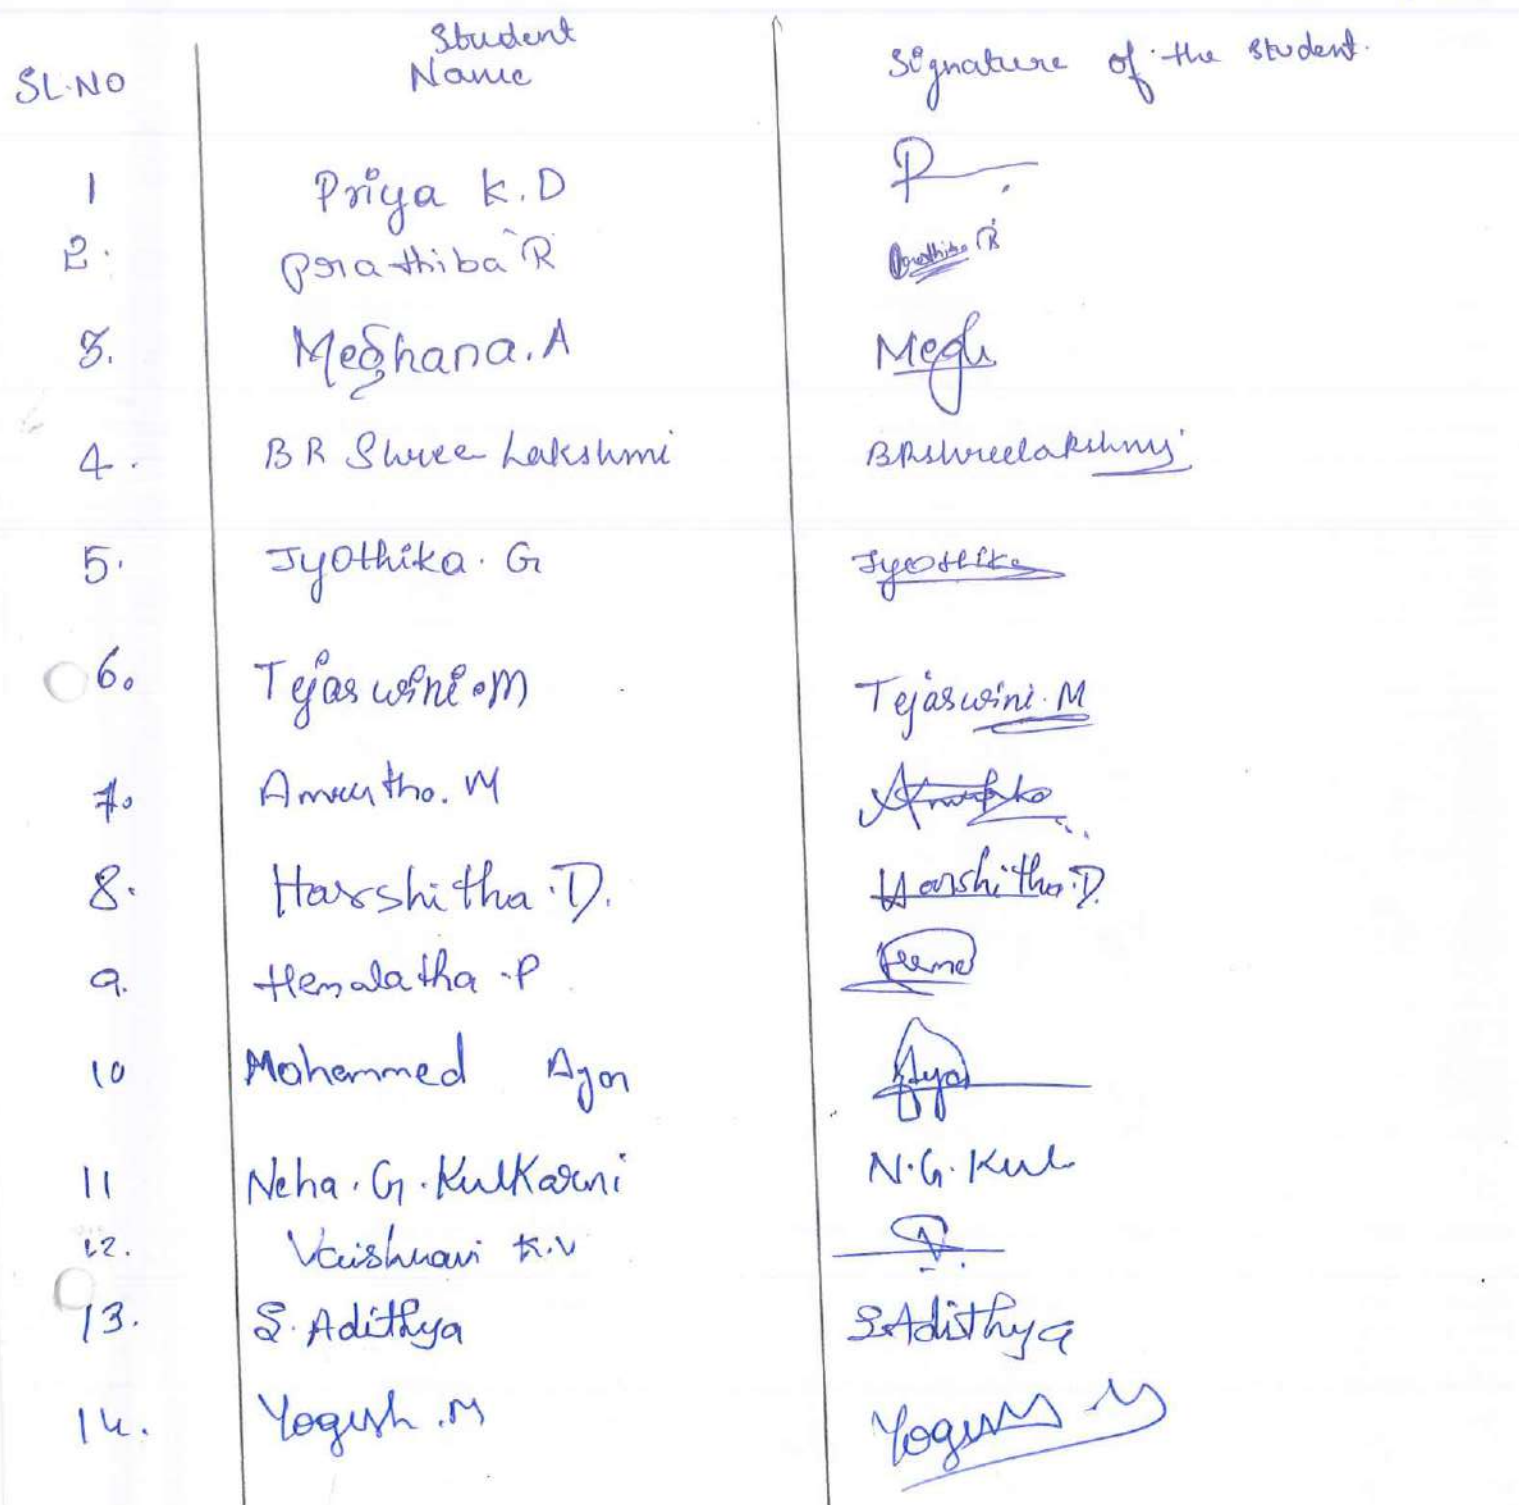 Student
SL.NO Name Signature of the student.
1 Priya K.D P
2. Prathiba R Prathiba R
3. Meghana.A Megh
4. B R Shree Lakshmi BRshreelakshmi
5. Jyothika. G Jyothika
6. Tejaswini.M Tejaswini.M
7. Amrutha.M
8. Harshitha.D. Harshitha.D
9. Hemalatha.P Hema
10 Mohammed Ayan Aya
11 Neha.G.Kulkarni N.G.Kul
12. Vaishnavi K.V
13. S.Adithya S.Adithya
14. Yogesh.M